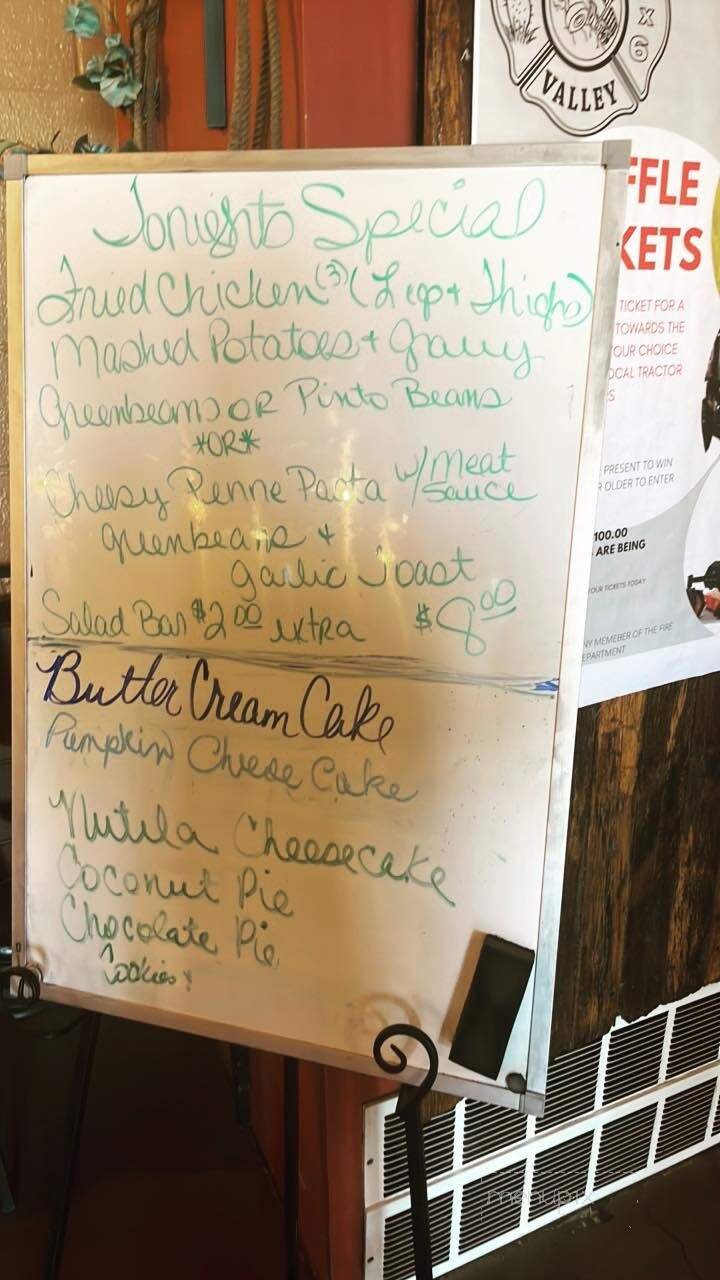 VALLEY
x
6
Tonights Special
Fried Chicken (3) (Leg + Thighs)
Mashed Potatoes + Gravy
Greenbeans OR Pinto Beans
*OR*
Cheesy Penne Pasta w/ Meat Sauce
greenbeans +
Garlic Toast
Salad Bar $2.00 extra $8.00
Butter Cream Cake
Pumpkin Cheese Cake
Nutella Cheesecake
Coconut Pie
Chocolate Pie
Cookies!
FFLE
KETS
TICKET FOR A
TOWARDS THE
OUR CHOICE
OCAL TRACTOR
PRESENT TO WIN
R OLDER TO ENTER
100.00
ARE BEING
YOUR TICKETS TODAY
NY MEMEBER OF THE FIRE
EPARTMENT
menupix